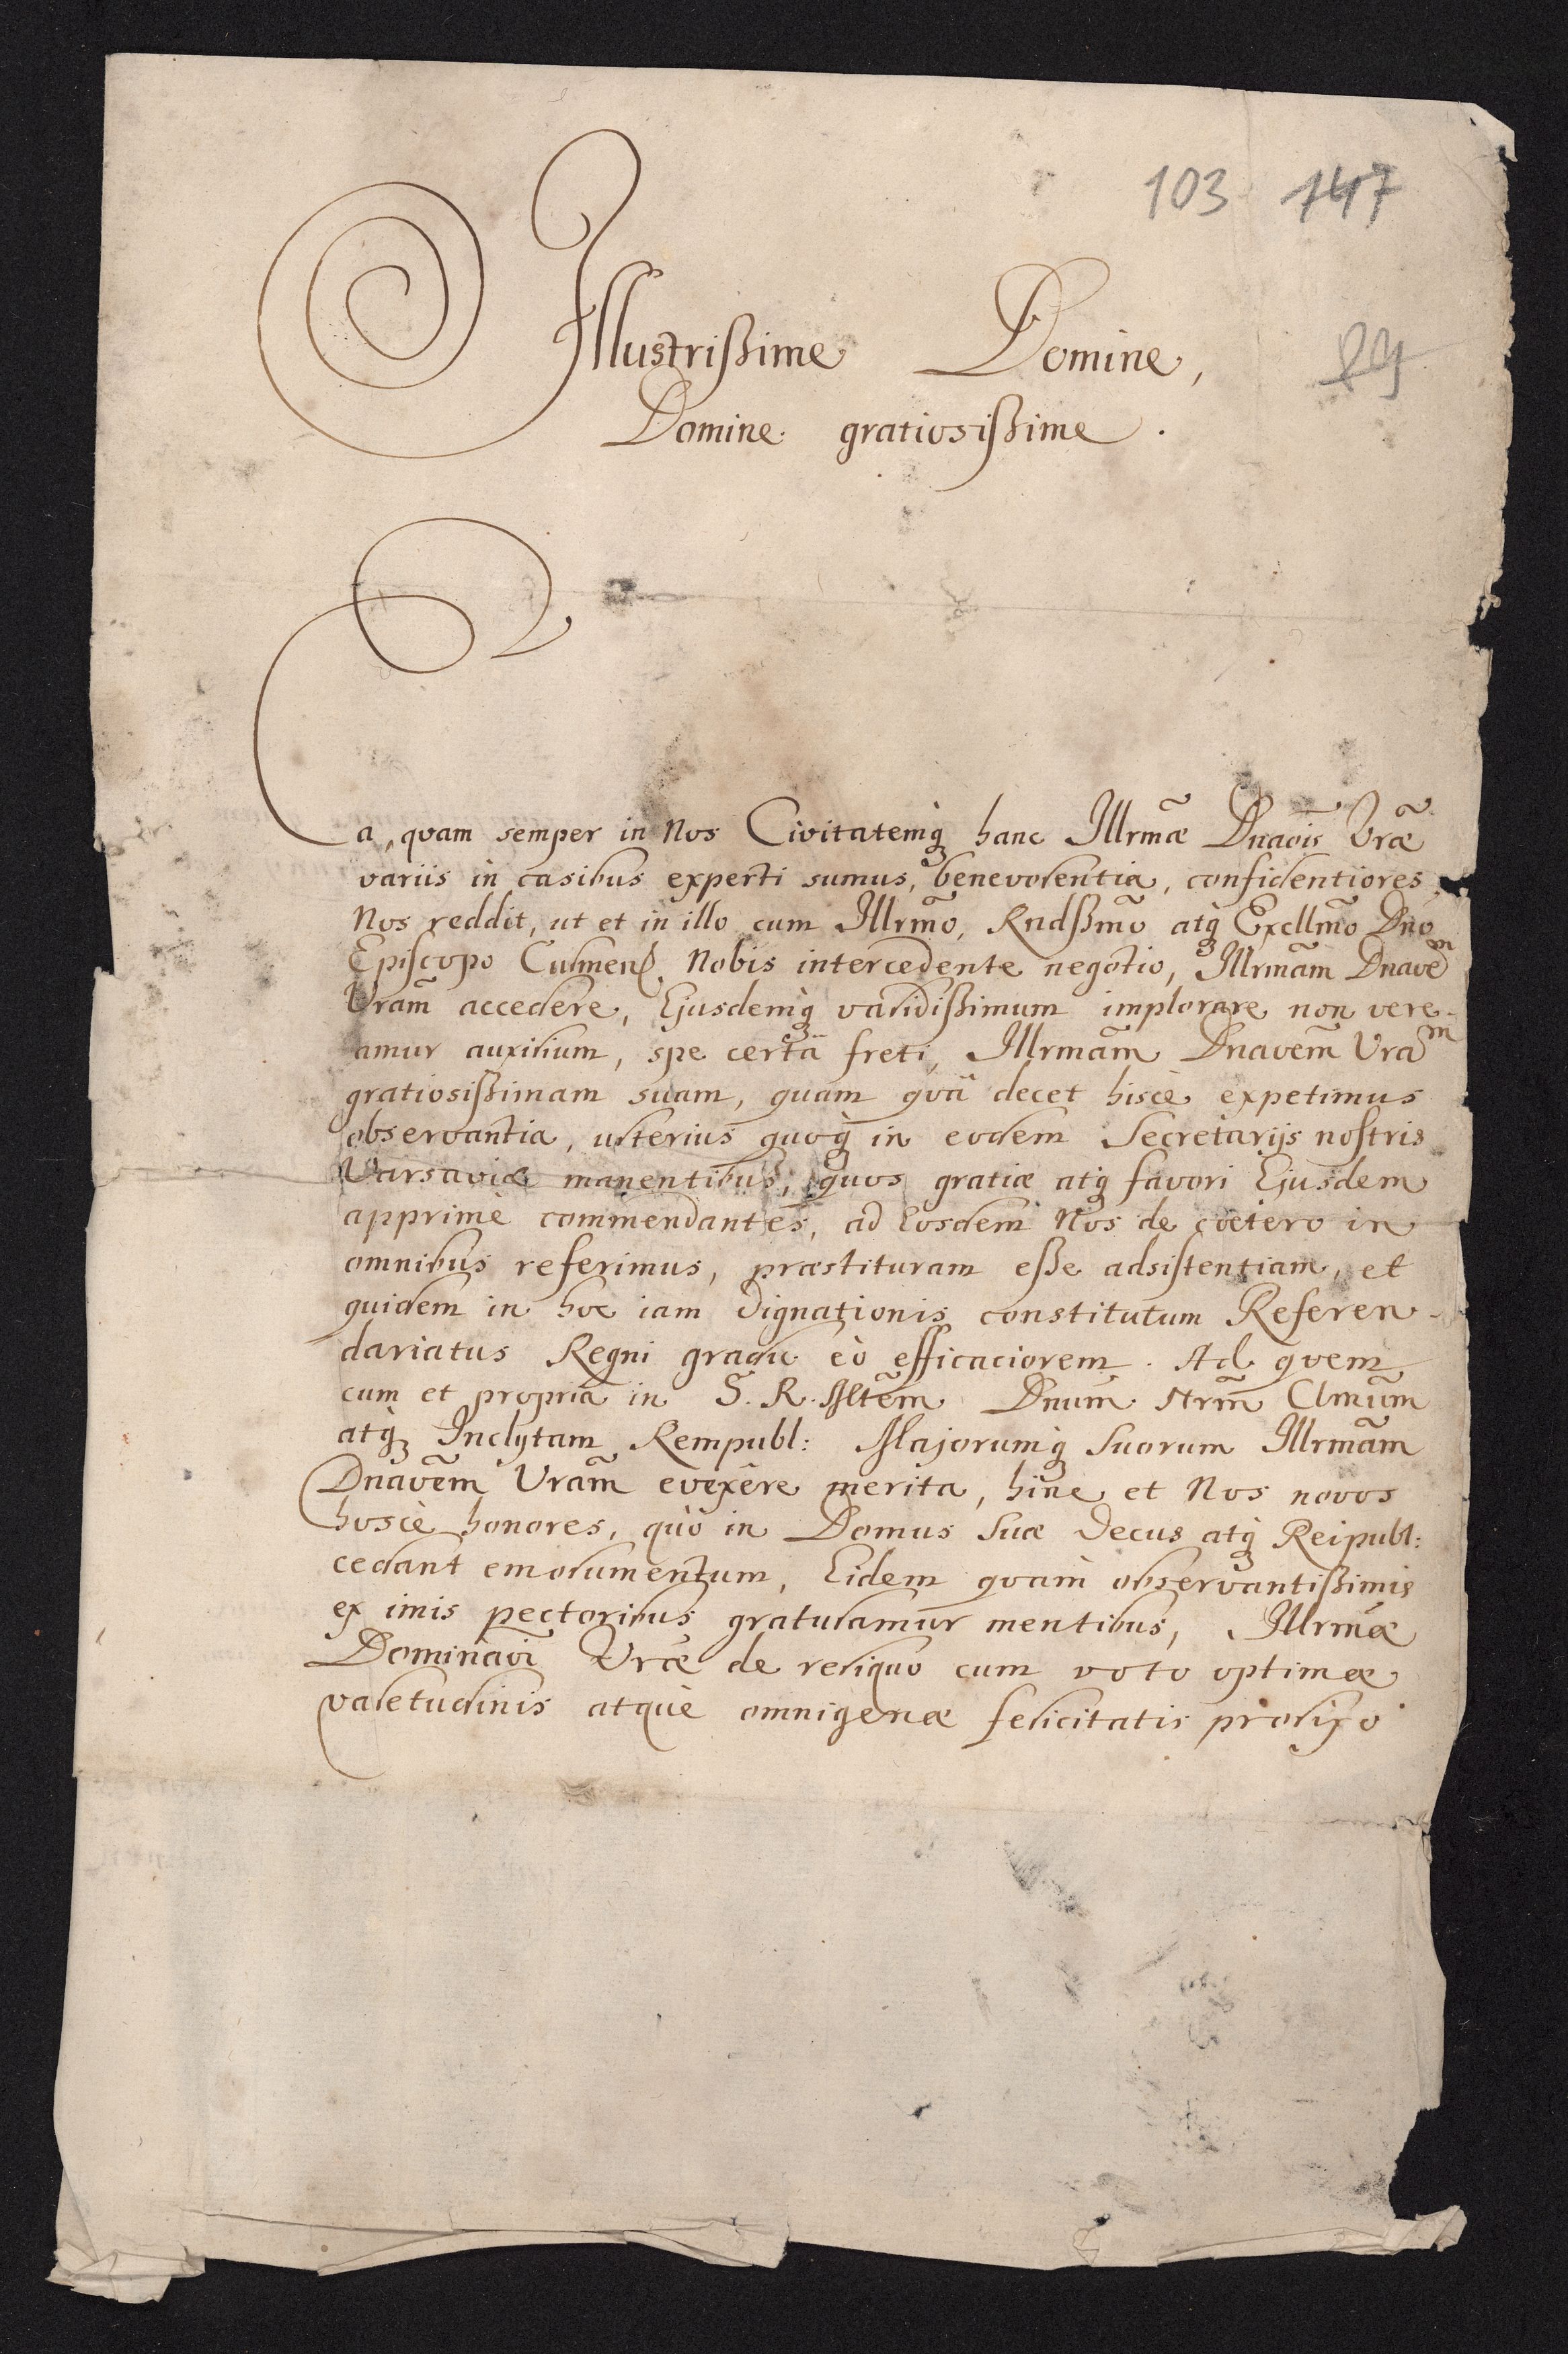 103 147
Illustrißime Domine,
89
Domine gratiosißime.
Ea, qvam semper in Nos Civitatemq́ʒ hanc Illrmæ̃ Dnaõis Vræ̃
variis in casibus experti sumus, benevolentia, confidentiores
Nos reddit, ut et in illo cum Illrmõ, Rndßmõ atqʒ Excllmõ Dnõ
Episcopo Culmens. Nobis intercedente negotio, Illrmãm Dnãvem
Vrãm accedere, Ejusdemq́ʒ validißimum implorare non vere-
amur auxilium, spe certâ freti, Illrmãm Dnavẽm Vrãm
gratiosißimam suam, quam qvâ decet hisce expetimus
observantia, ulterius quoqʒ in eodem Secretarijs nostris
Varsaviæ manentibus, quos gratiæ atqʒ favori Ejusdem
apprimè commendantes, ad Eosdem Nos de cœtero in
omnibus referimus, præstituram eße adsistentiam, et
quidem in hoc iam dignationis constitutum Referen-
dariatus Regni gradu eò efficaciorem. Ad qvem
cum et propria in S. R. Mtẽm Dnũm Nrm̃ Clmũm
atqʒ Inclytam Rempubl: Majorumq́ʒ suorum Illrmãm
Dnavẽm Vrãm evexêre merita, hinc et Nos novos
hosce honores, quò in Domus suæ decus atqʒ Reipubl:
cedant emolumentum, Eidem qvàm observantißimis
ex imis pectoribus gratulamur mentibus, Illrmæ̃
Dominãvi Vræ̃ de reliquo cum voto optimæ
valetudinis atque omnigenæ felicitatis prolixo